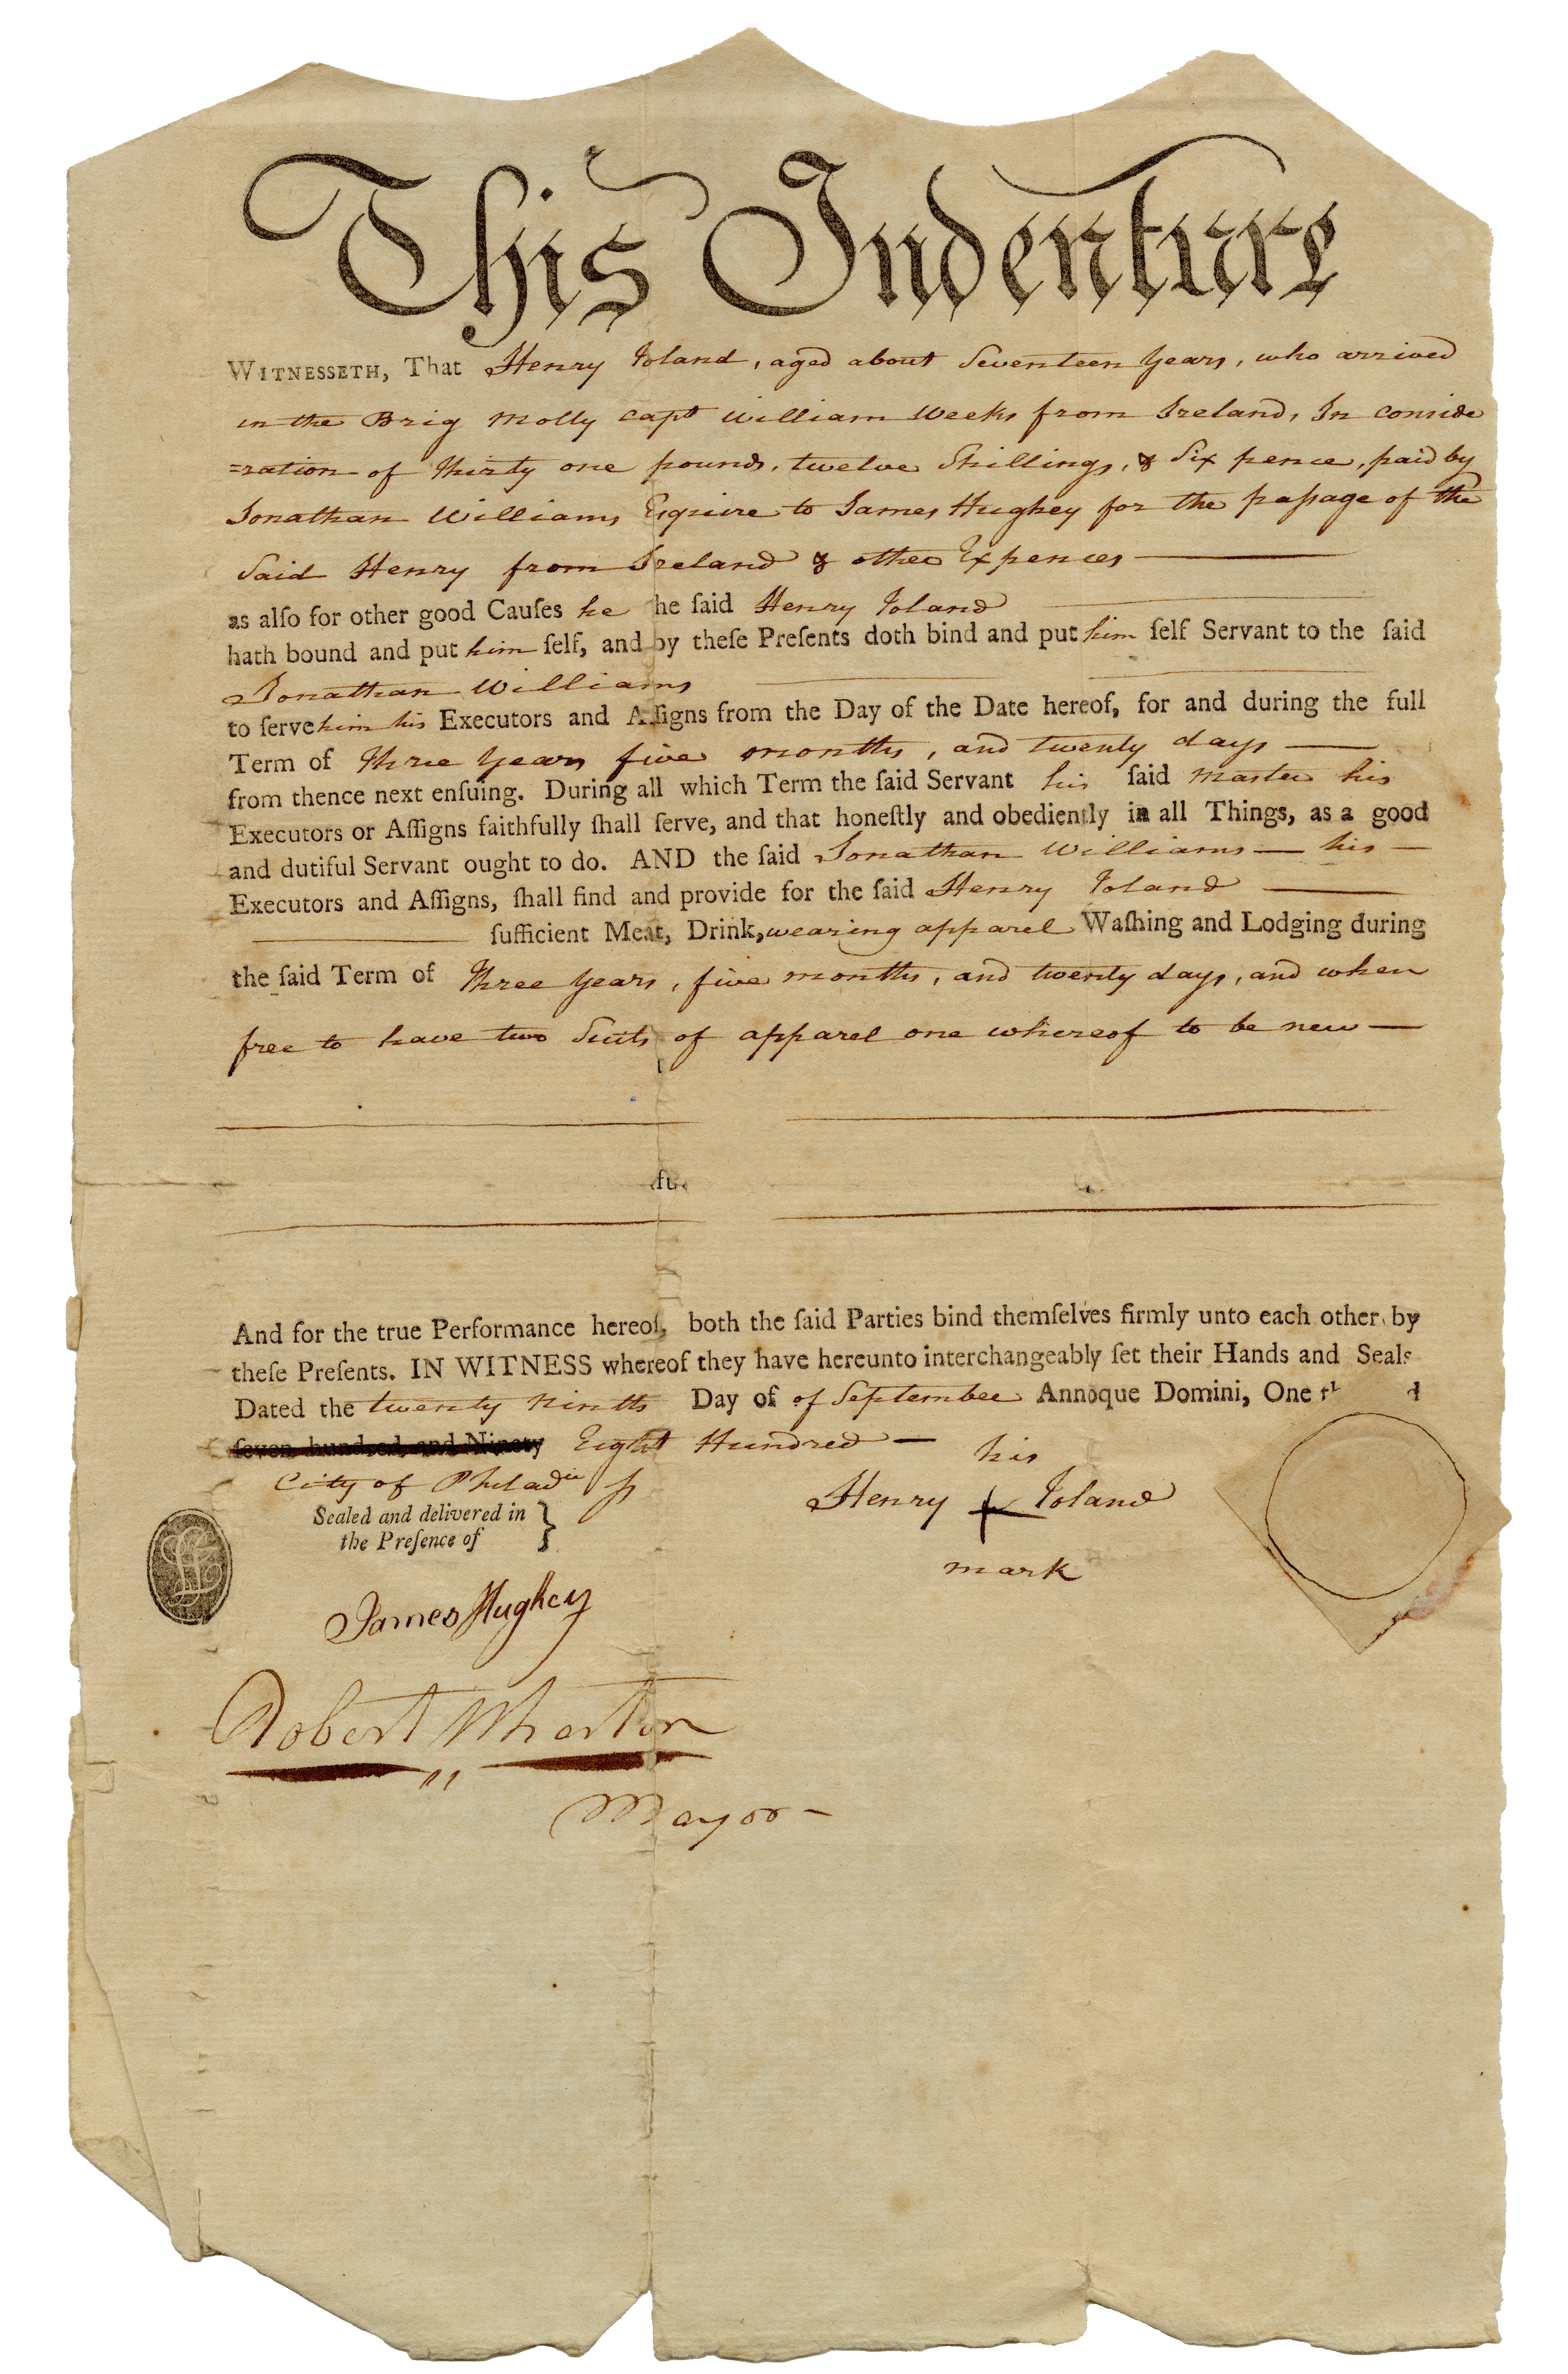 This Indenture
WITNESSETH, That Henry Toland, aged about Seventeen Years, who arrived
in the Brig Molly Capt William Weeks from Ireland, In conside
=ration of Thirty one pounds, twelve Shillings, & Six pence, paid by
Jonathan Williams Esquire to James Hughey for the paſsage of the
Said Henry from Ireland & other Expences
as alſo for other good Cauſes he he ſaid Henry Toland
hath bound and put him ſelf, and by theſe Preſents doth bind and put him ſelf Servant to the ſaid
Jonathan Williams
to ſerve him his Executors and Aſſigns from the Day of the Date hereof, for and during the full
Term of Three Years five months, and twenty days
from thence next enſuing. During all which Term the ſaid Servant his ſaid Master his
Executors or Aſſigns faithfully ſhall ſerve, and that honeſtly and obediently in all Things, as a good
and dutiful Servant ought to do. AND the ſaid Jonathan Williams — his —
Executors and Aſſigns, ſhall find and provide for the ſaid Henry Toland
ſufficient Meat, Drink, wearing apparel Waſhing and Lodging during
the ſaid Term of Three Years, five months, and twenty days, and when
free to have two Suits of apparel one whereof to be new —
And for the true Performance hereof, both the ſaid Parties bind themſelves firmly unto each other by
theſe Preſents. IN WITNESS whereof they have hereunto interchangeably ſet their Hands and Seals
Dated the twenty ninth Day of of September Annoque Domini, One th d
ſeven hundred and Ninety Eight Hundred —
his
City of Philad
Henry + Toland
mark
Sealed and delivered in
the Preſence of }
James Hughey
Robert Wharton
Mayor —